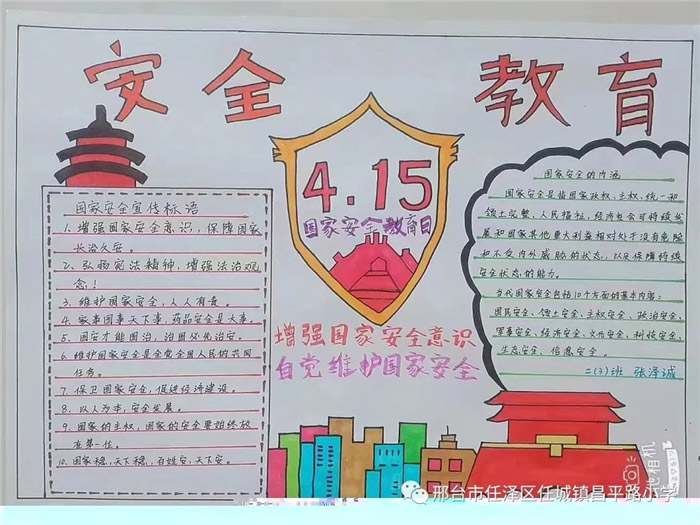 安全 教育
4.15
国家安全教育日
增强国家安全意识
自党维护国家安全
国家安全宣传标语
1、增强国家安全意识，保障国家
长治久安。
2、弘扬宪法精神，增强法治观
念！
3、维护国家安全，人人有责。
4、家事国事天下事，药品安全是大事。
5、国安才能国治，治国必先治安。
6、维护国家安全是全党全国人民的共同
任务。
7、保卫国家安全，促进经济建设。
8、以人为本，安全发展。
9、国家的主权，国家的安全要始终放
在第一位。
10、国家稳，天下稳，百姓安，天下安。
国家安全的内涵
国家安全是指国家政权、主权、统一和
领土完整、人民福祉、经济社会可持续发
展和国家其他重大利益相对处于没有危险
和不受内外威胁的状态，以及保障持续
安全状态的能力。
当代国家安全包括10个方面的基本内容：
国民安全、领土安全、主权安全、政治安全、
军事安全、经济安全、文化安全、科技安全、
生态安全、信息安全。
二(3)班 张泽诚
邢台市任泽区任城镇昌平路小学